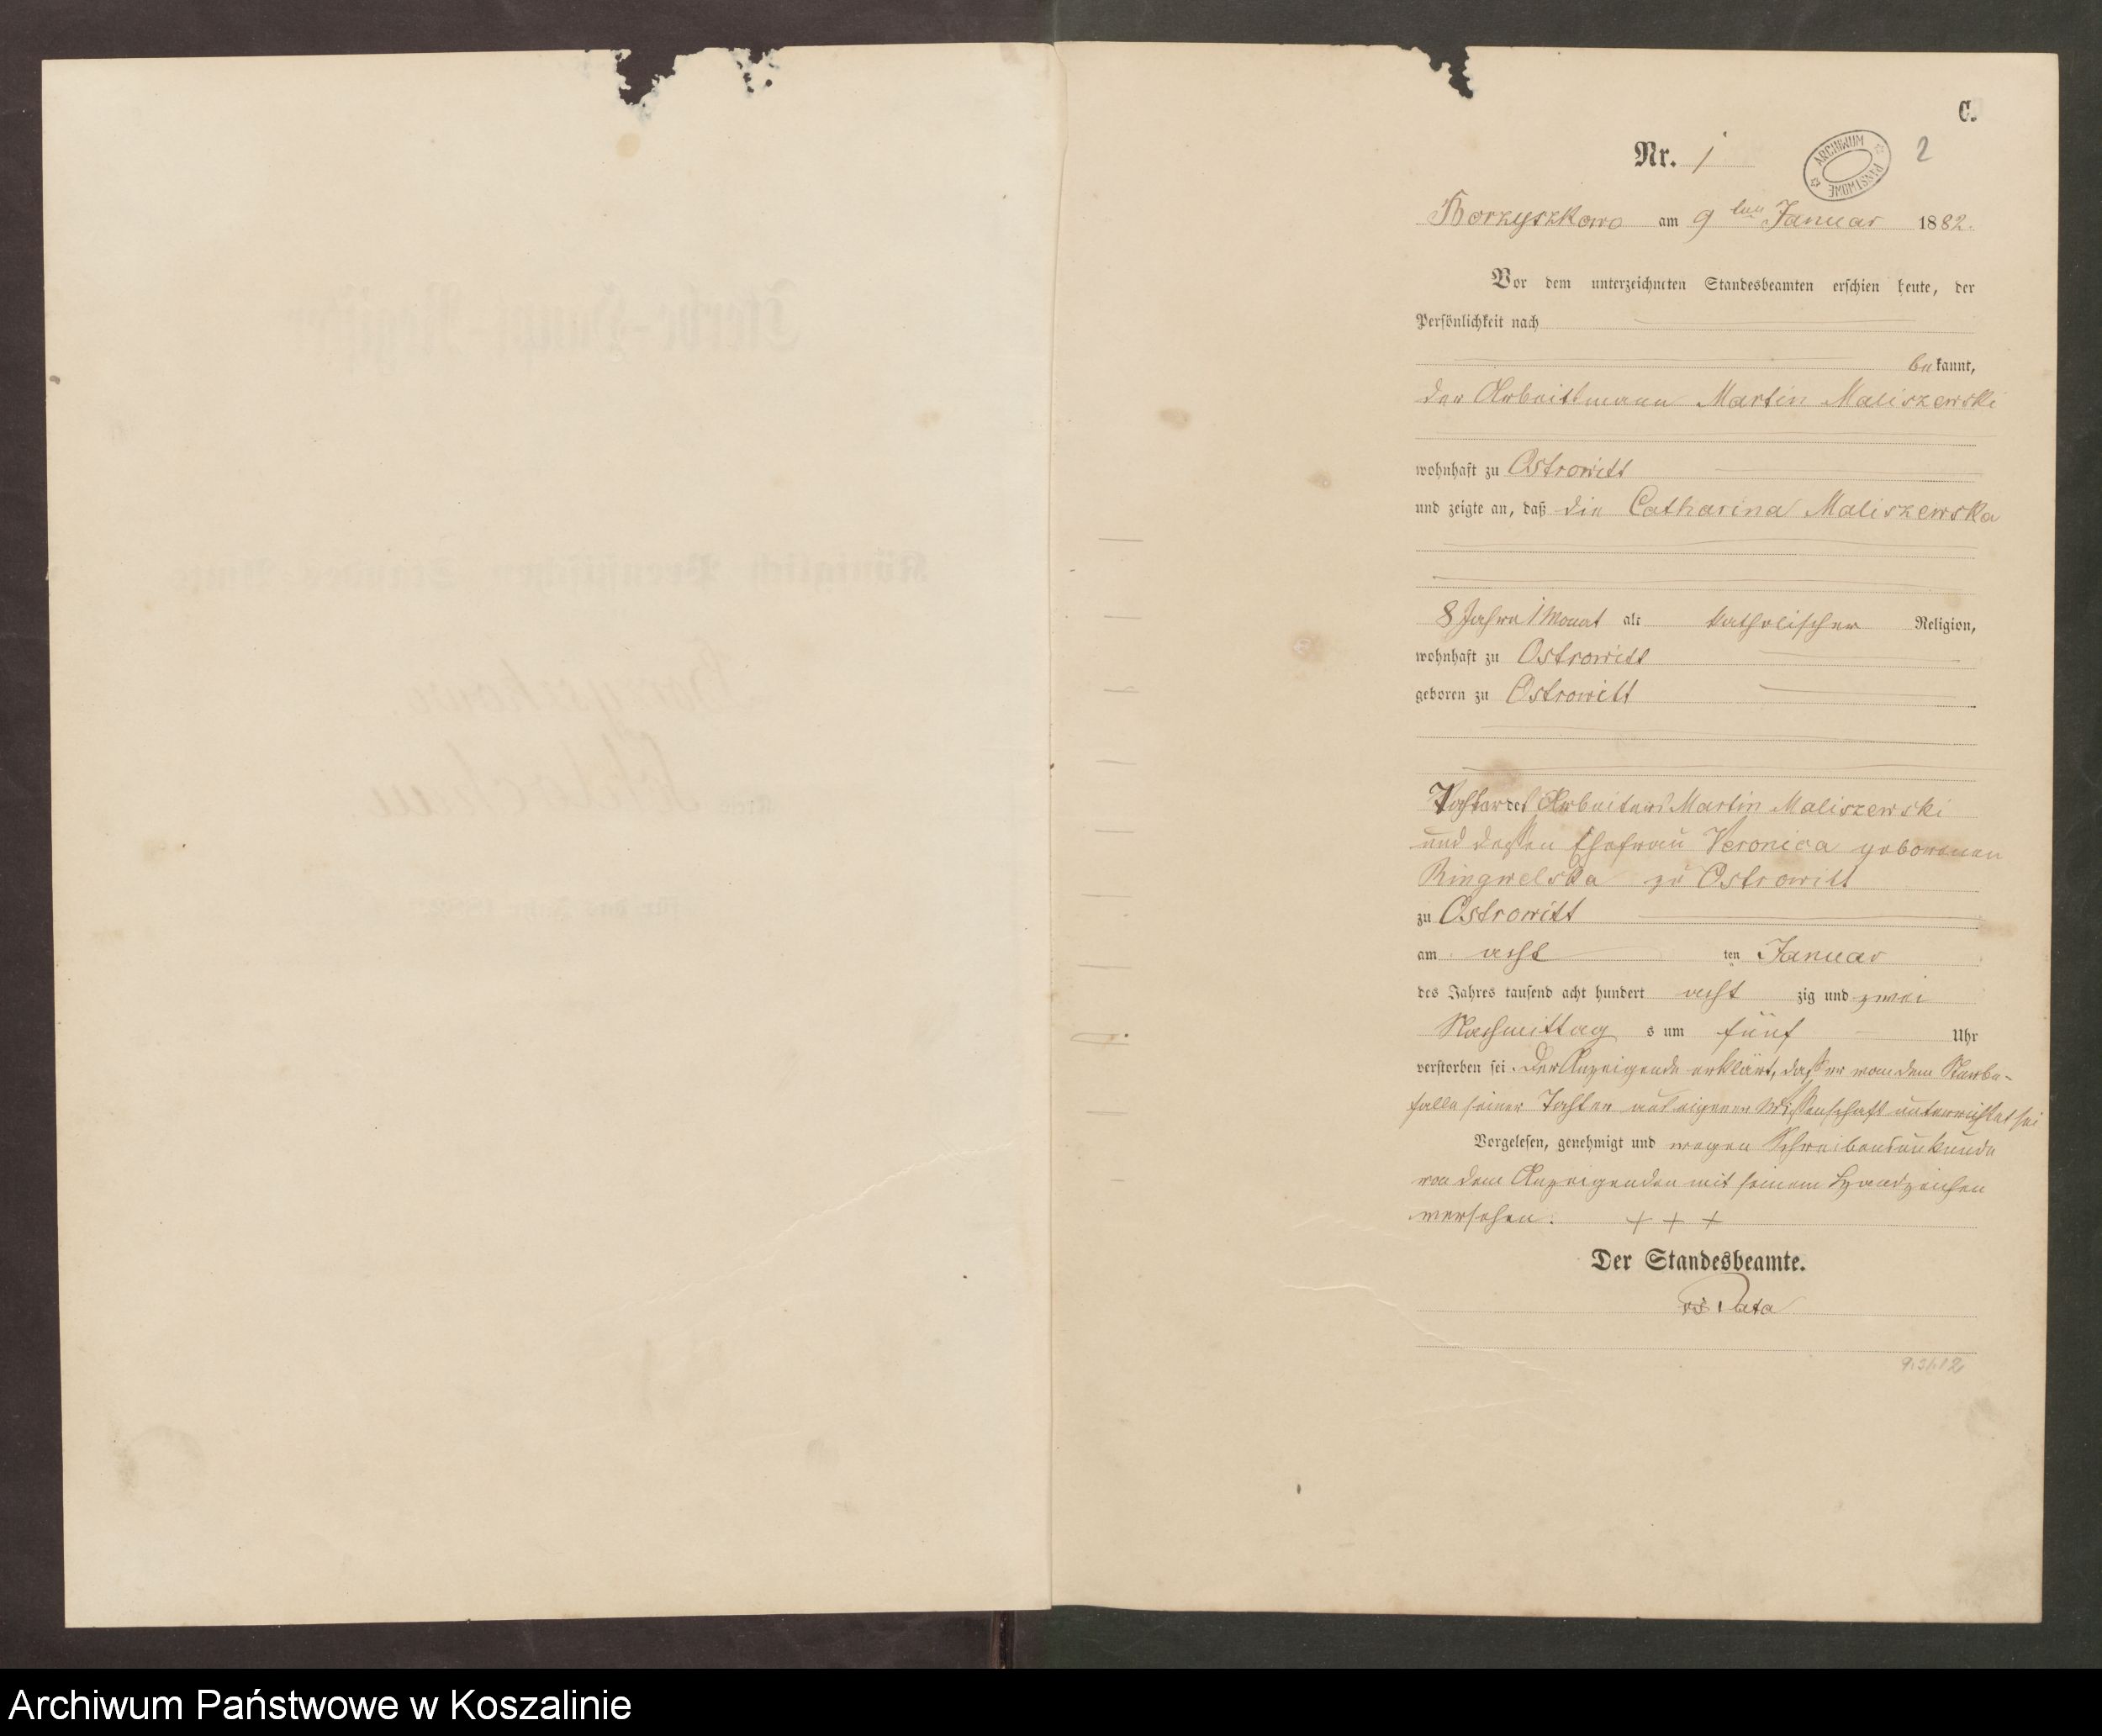 C.
Nr. 1
ARCHIWUM PAŃSTWOWE
2
Borzyszkowo am 9ten Januar 1882.
Vor dem unterzeichneten Standesbeamten erschien heute, der
Persönlichkeit nach
bekannt,
der Arbeitsmann Martin Maliszewski
wohnhaft zu Ostrowitt
und zeigte an, daß die Catharina Maliszewska
8 Jahre 1 Monat alt katholischer Religion,
wohnhaft zu Ostrowitt
geboren zu Ostrowitt
Tochter des Arbeiters Martin Maliszewski
und dessen Ehefrau Veronica geborenen
Ringwelska zu Ostrowitt
zu Ostrowitt
am acht ten Januar
des Jahres tausend acht hundert acht zig und zwei
Nachmittag s um fünf Uhr
verstorben sei. Der Anzeigende erklärt, daß er von dem Sterbe-
falle seiner Tochter aus eigener Wissenschaft unterrichtet sei
Vorgelesen, genehmigt und wegen Schreibensunkunde
von dem Anzeigenden mit seinem Handzeichen
versehen. + + +
Der Standesbeamte.
Archiwum Państwowe w Koszalinie